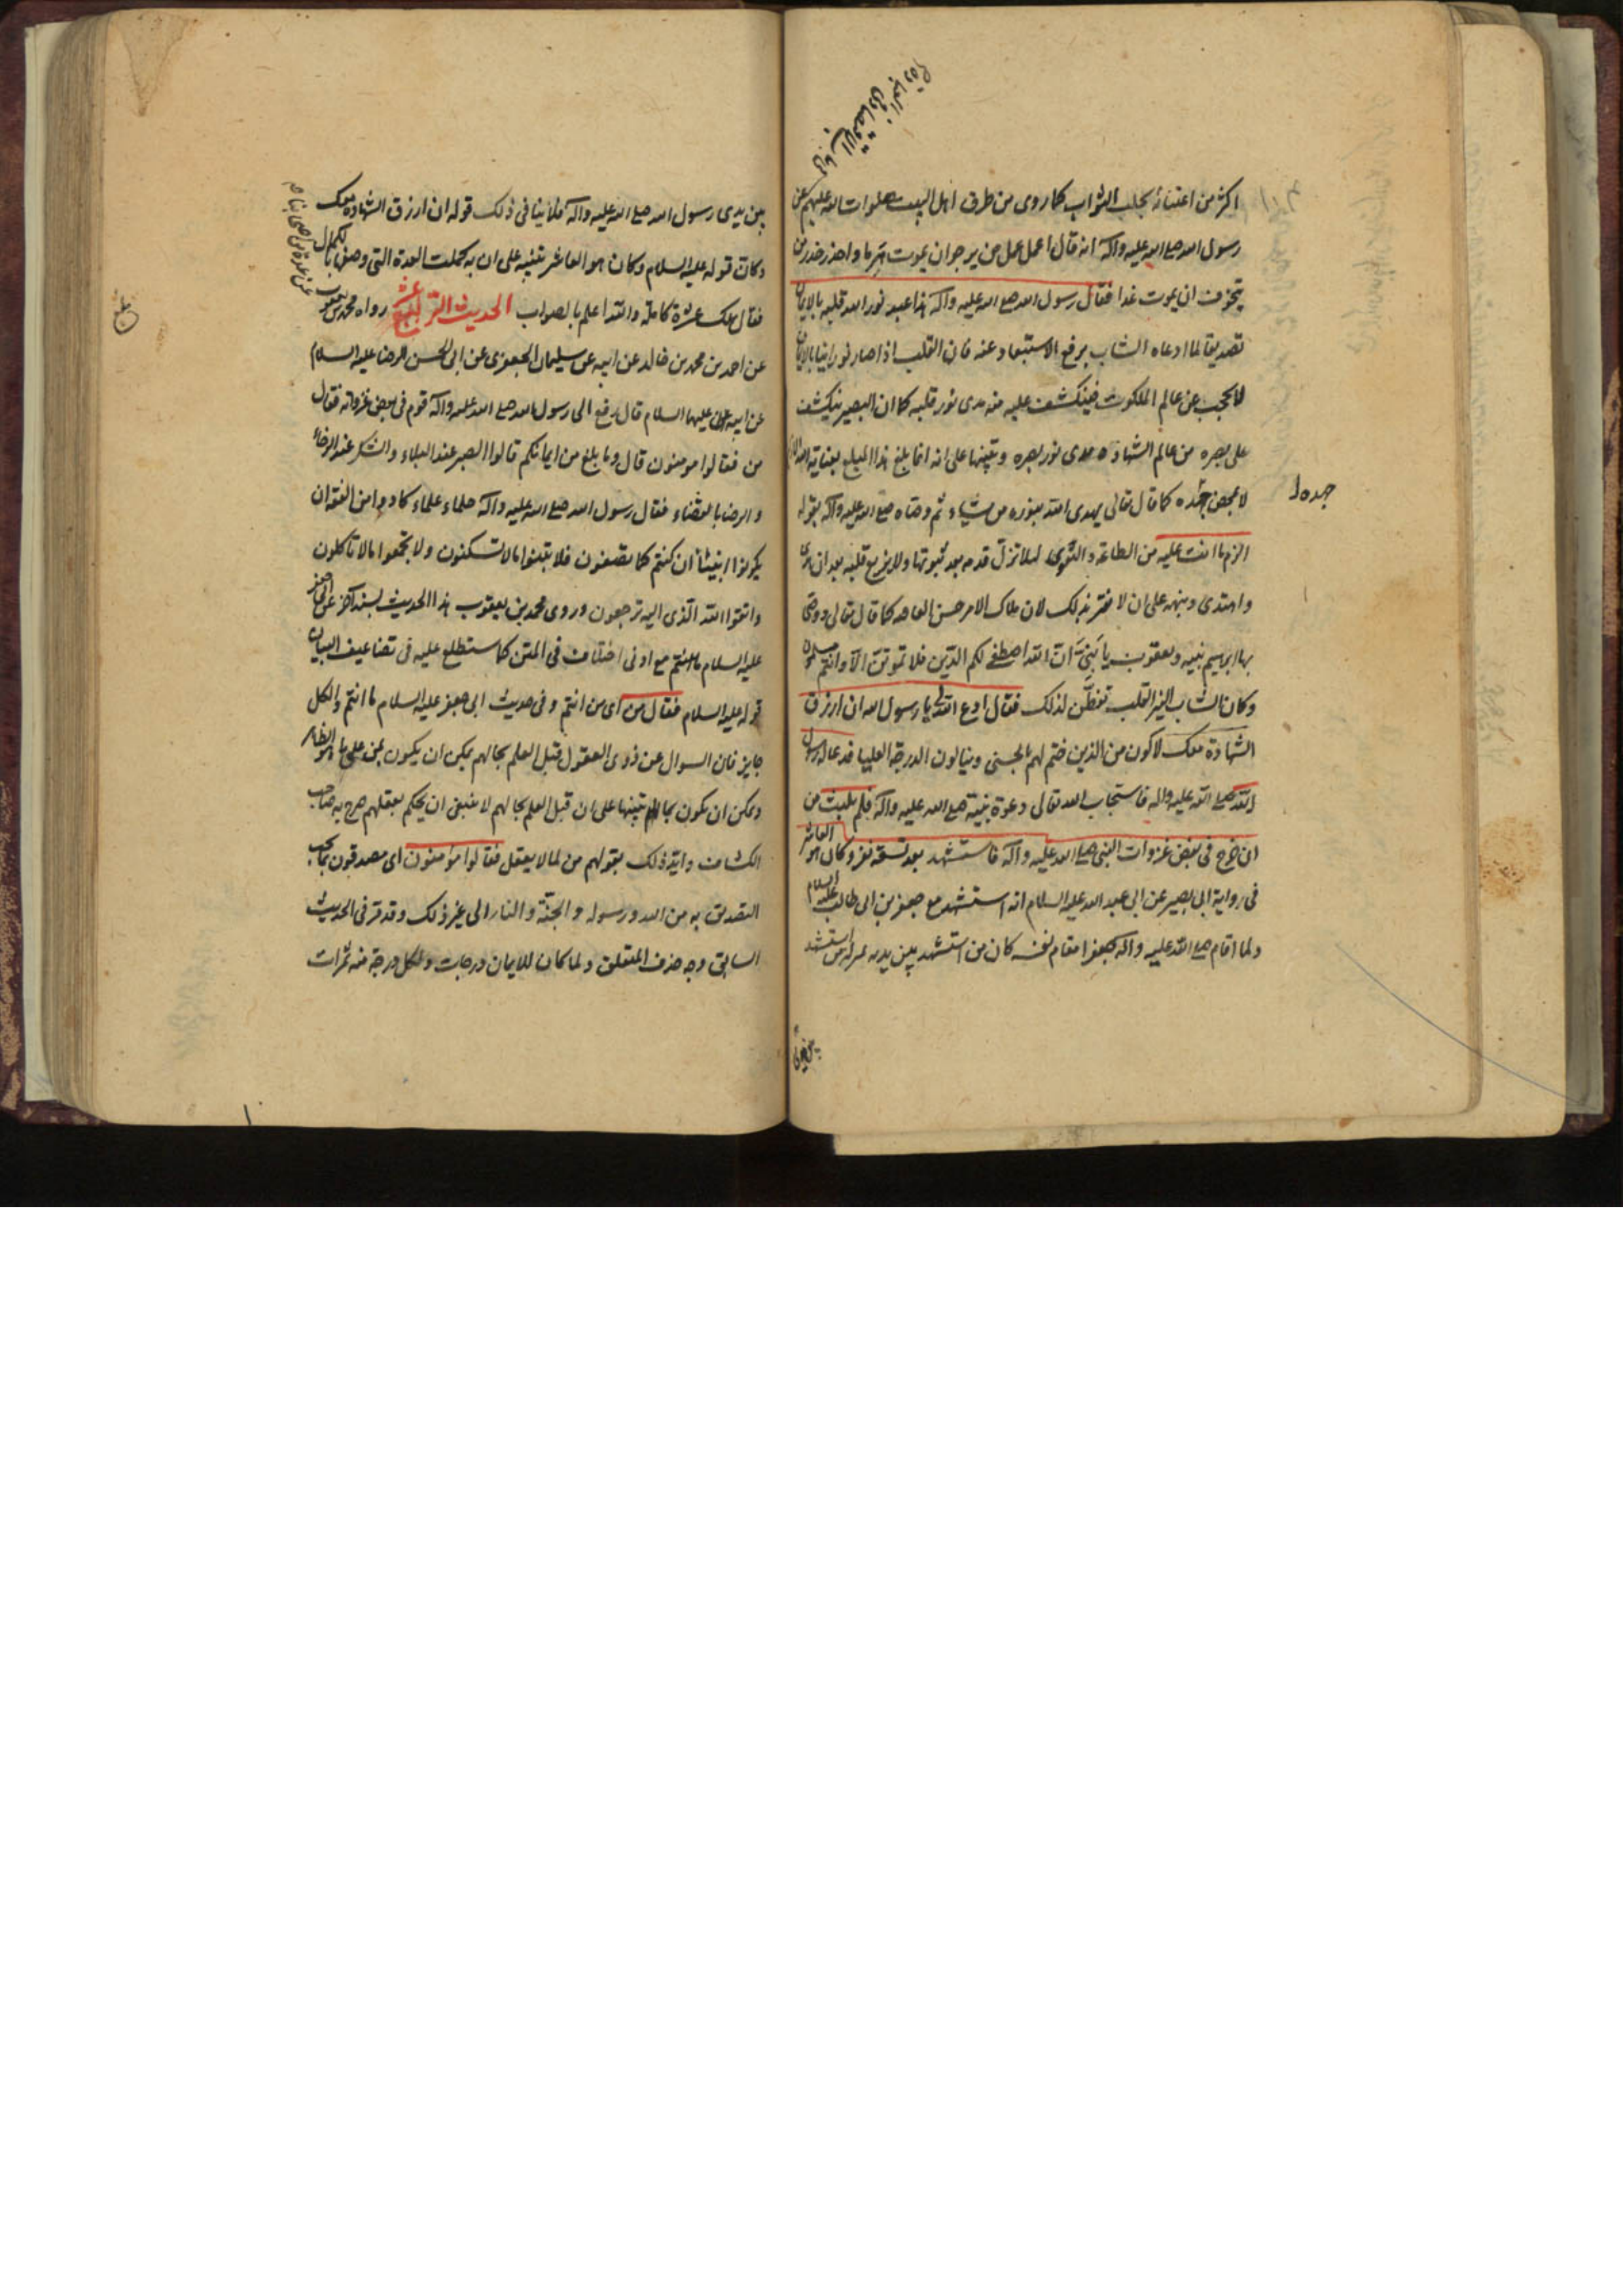 اكثر من اعتنائه بجلب الثواب كما روى من طرق اهل البيت صلوات الله عليهم عن
رسول الله صلى الله عليه وآله انه قال اعمل عمل من يرجوان يموت هرما واحذر حذر من
يتخوف ان يموت غدا فقال رسول الله صلى الله عليه وآله هذا عبد نور الله قلبه بالايمان
تصديقا لما ادعاه الشاب برفع الاستبعاد عنه فان القلب اذا صار نورانيا بالايمان
لا يحجب عن عالم الملكوت فينكشف عليه منه مدى نور قلبه كما ان البصير ينكشف
على بصره من عالم الشهادة مدى نور بصره وتنبيها على انه انما بلغ هذا المبلغ بعناية الله
لا بمحض جهده كما قال تعالى يهدى الله بنوره من يشاء ثم وصاه صلى الله عليه وآله بقوله
جهده
الزم ما انت عليه من الطاعة والتقوى لئلا تزل قدم بعد ثبوتها ولا يزيغ قلبه بعد ان
واهتدى ونبهه على ان لا يغتر بذلك لان ملاك الامر حسن العاقبة كما قال تعالى ووصى
بها ابرهيم بنيه ويعقوب يا بنى ان الله اصطفى لكم الدين فلا تموتن الا وانتم مسلمون
وكان الشاب القلب تفطن لذلك فقال ادع الله لى يا رسول الله ان ارزق
الشهادة معك لاكون من الذين ختم لهم بالحسنى وينالون الدرجة العليا فدعا له رسول
الله صلى الله عليه وآله فاستجاب الله تعالى دعوة نبيه صلى الله عليه وآله فلم يلبث من
ان خرج فى بعض غزوات النبى صلى الله عليه وآله فاستشهد بعد تسعة نفر وكان هو العاشر
فى رواية ابى بصير عن ابى عبد الله عليه السلام انه استشهد مع جعفر بن ابى طالب عليه السلام
ولما اقام صلى الله عليه وآله جعفرا مقام نفسه كان من استشهد بين يديه بمنزلة من استشهد
بين يدى رسول الله صلى الله عليه وآله فلا ينافى ذلك قوله ان ارزق الشهادة معك
وكان قوله عليه السلام وكان هو العاشر تنبيه على ان به كملت العدة التى وصفها بالكمال
فقال تلك عشرة كاملة والله اعلم بالصواب الحديث الرابع عشر رواه محمد بن يعقوب
عن عدة من اصحابنا
عن احمد بن محمد بن خالد عن ابيه عن سليمان الجعفرى عن ابى الحسن الرضا عليه السلام
عن ابيه عليهما السلام قال رفع الى رسول الله صلى الله عليه وآله قوم فى بعض غزواته فقال
من فقالوا مومنون قال وما بلغ من ايمانكم قالوا الصبر عند البلاء والشكر عند الرخاء
والرضا بالقضاء فقال رسول الله صلى الله عليه وآله حلماء علماء كادوا من الفقه ان
يكونوا انبياء ان كنتم كما تصفون فلا تبنوا ما لا تسكنون ولا تجمعوا ما لا تاكلون
واتقوا الله الذى اليه ترجعون وروى محمد بن يعقوب هذا الحديث بسند آخر عن ابى جعفر
عليه السلام مع ادنى اختلاف فى المتن كما ستطلع عليه فى تضاعيف البيان
قوله عليه السلام فقال من اى من انتم وفى حديث ابى جعفر عليه السلام ما انتم والكل
جايز فان السوال عن ذوى العقول قبل العلم بحالهم يمكن ان يكون بمن على ما هو الظاهر
ويمكن ان يكون بما تنبيها على ان قبل العلم بحالهم لا ينبغى ان يحكم بعقلهم صرح به صاحب
الكشاف وايد ذلك بقولهم من لما لا يعقل فقالوا مؤمنون اى مصدقون بما يجب
التصديق به من الله ورسوله والجنة والنار الى غير ذلك وقد مر فى الحديث
السابق وجه حذف المتعلق ولما كان للايمان درجات ولكل درجة منه ثمرات